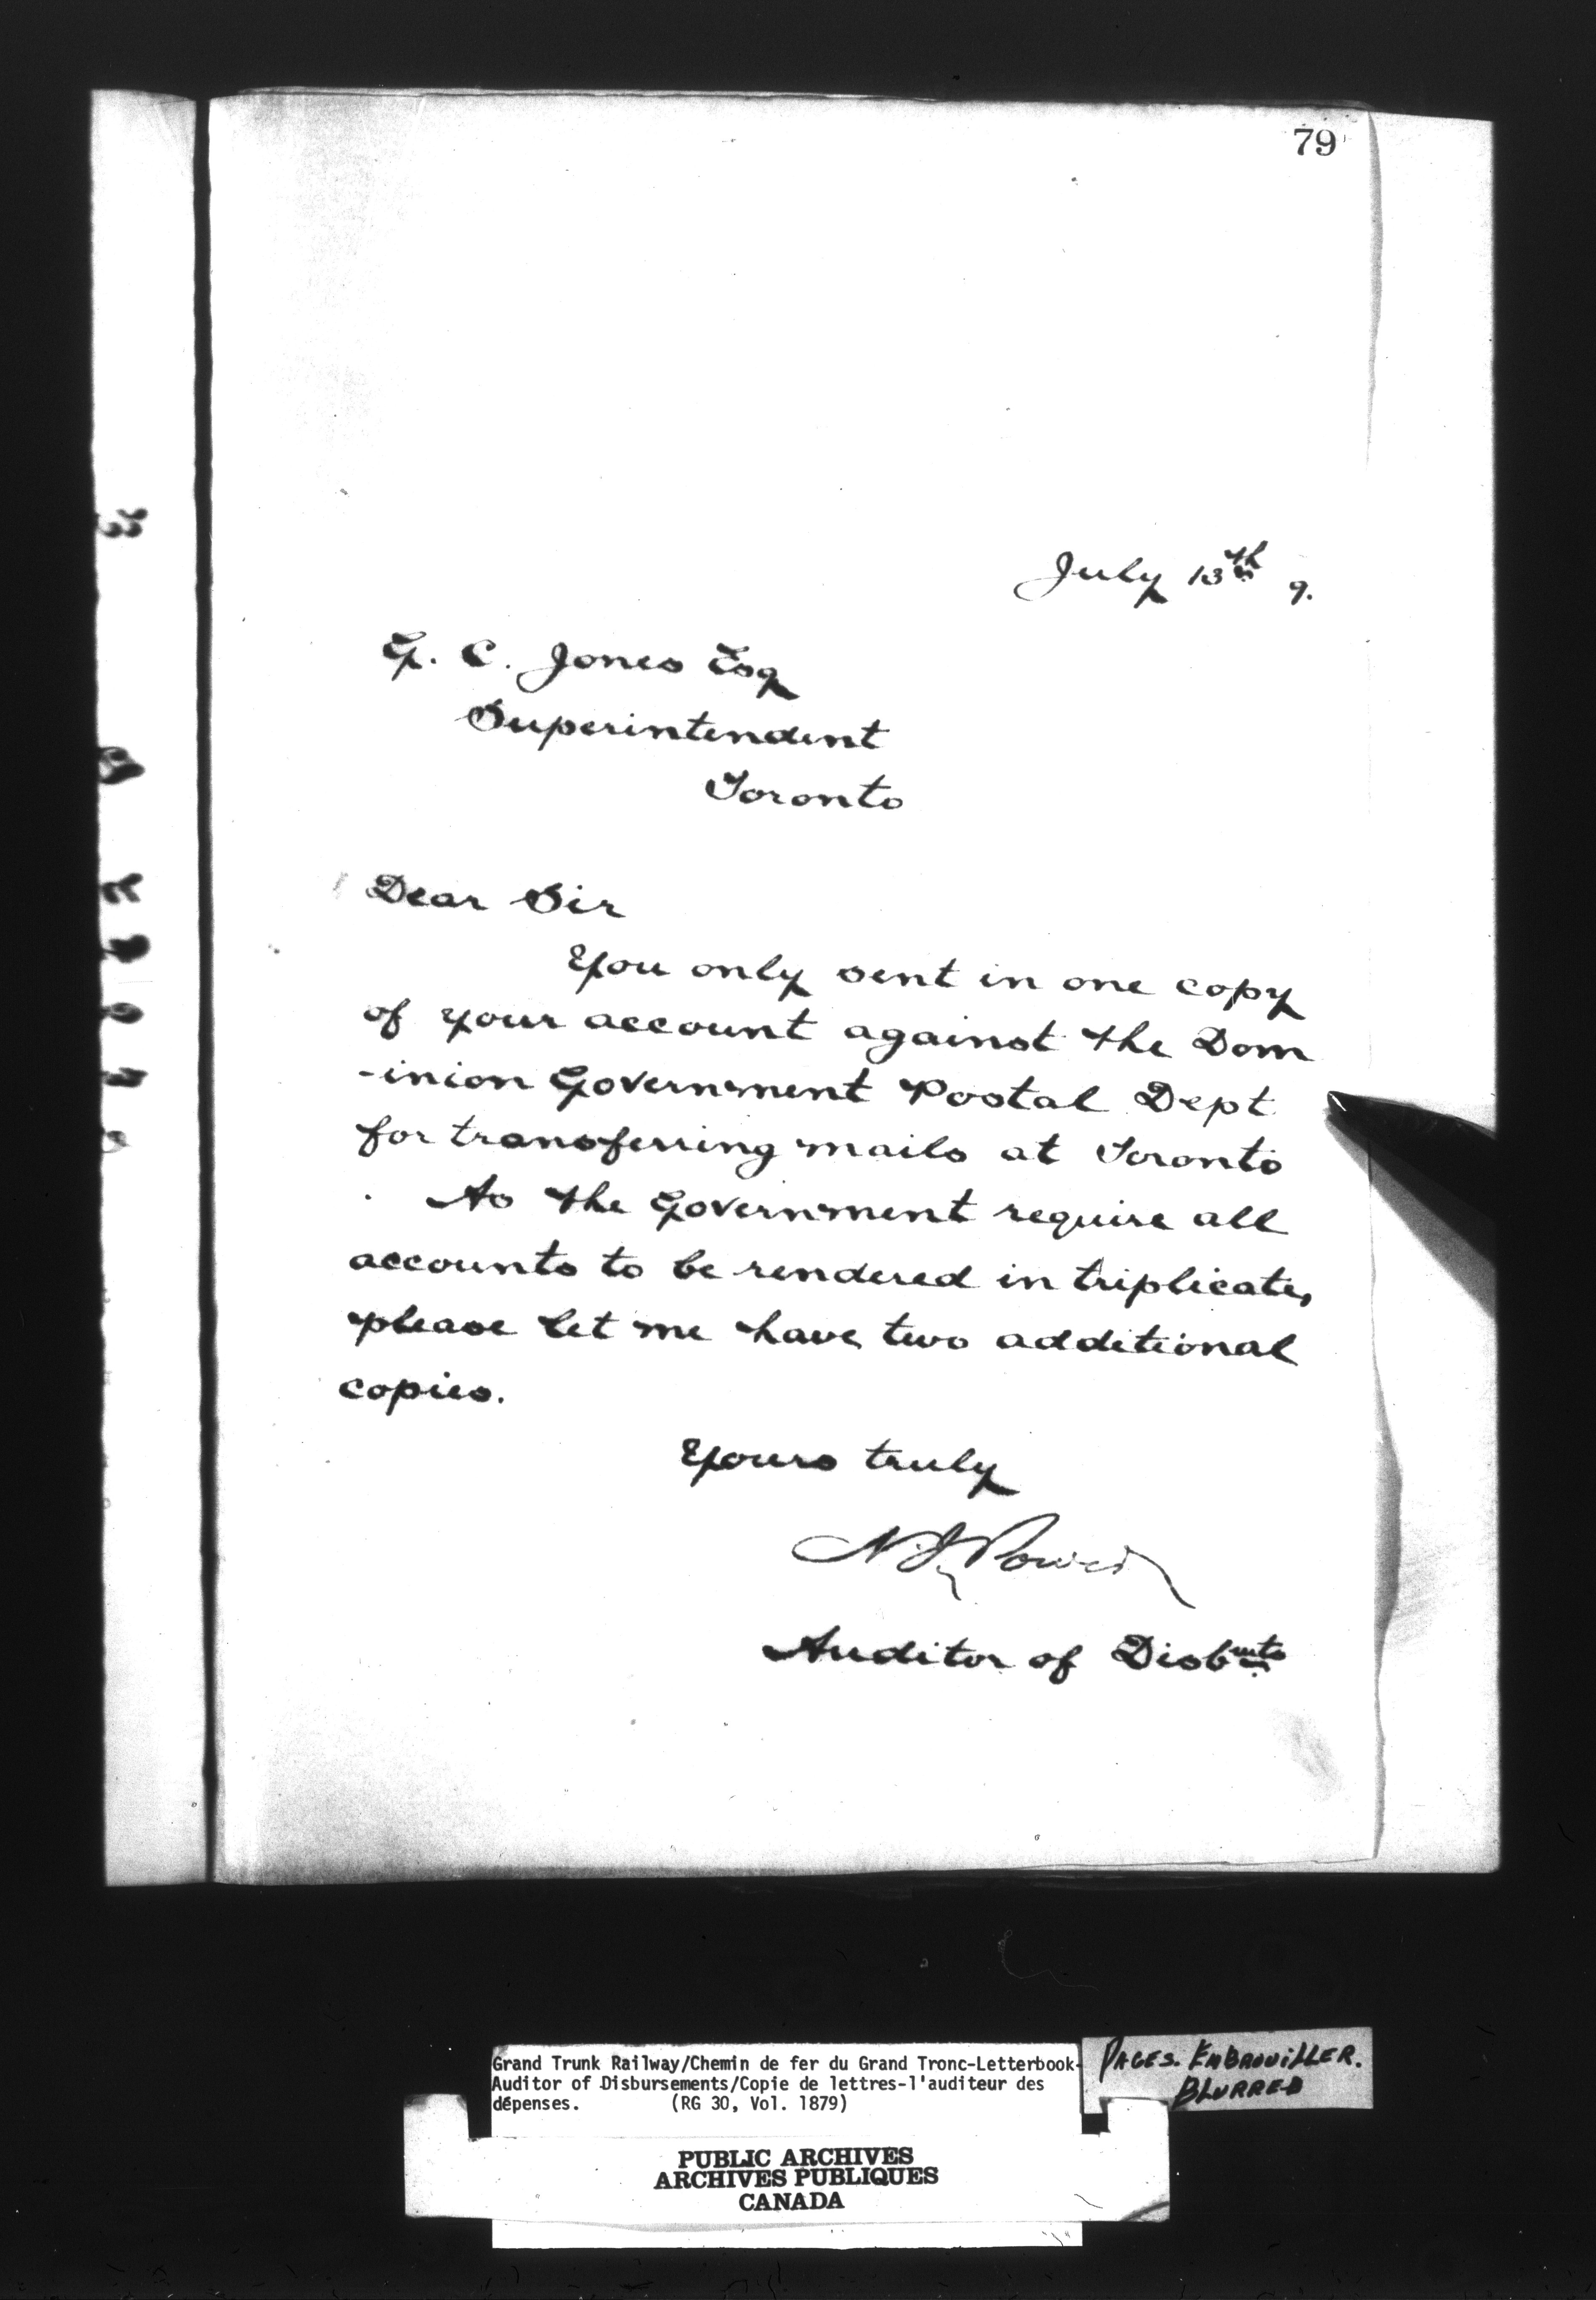 79
July 13th 9.
G. C. Jones Esq
Superintendent
Toronto
Dear Sir
You only sent in one copy
of your account against the Dom
-inion Government Postal Dept
for transferring mails at Toronto
As the Government require all
accounts to be rendered in triplicate,
please let me have two additional
copies.
Yours truly
N J Power
Auditor of Disbmts
Grand Trunk Railway/Chemin de fer du Grand Tronc-Letterbook-
Auditor of Disbursements/Copie de lettres-l'auditeur des
dépenses. (RG 30, Vol. 1879)
PAGES. EMBROUILLER.
BLURRED
PUBLIC ARCHIVES
ARCHIVES PUBLIQUES
CANADA